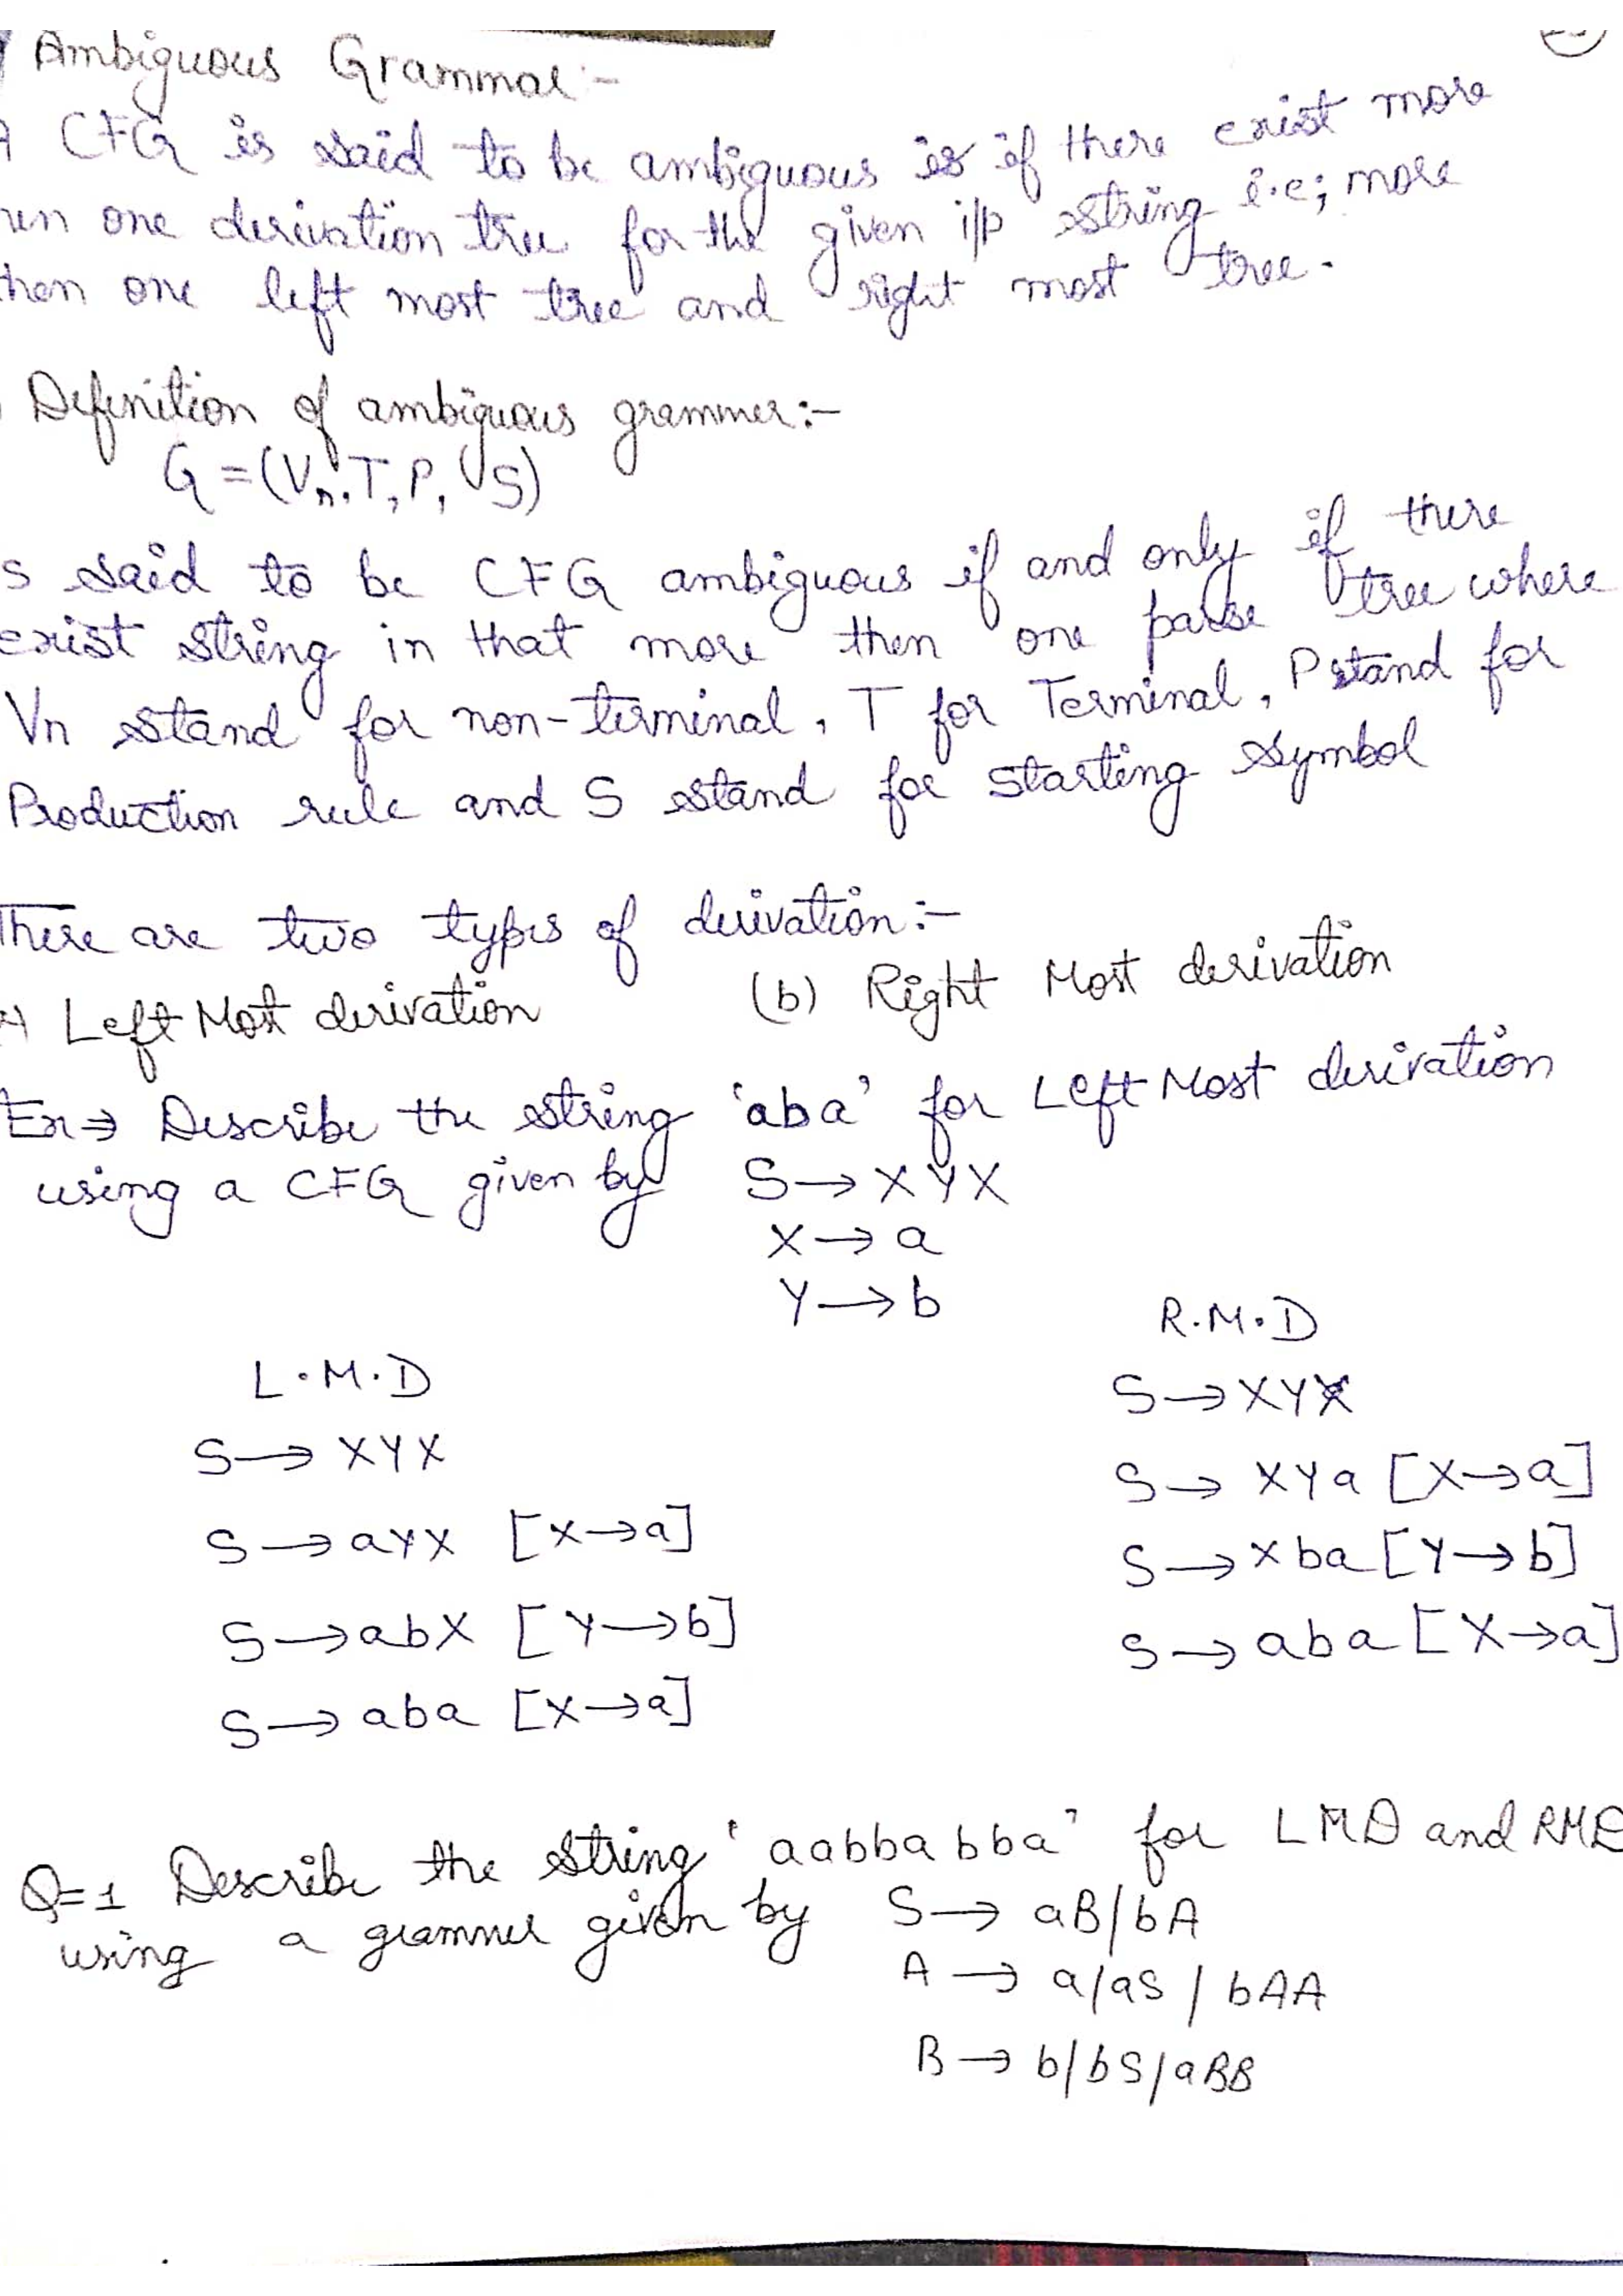 Ambiguous Grammar:-
A CFG is said to be ambiguous is if there exist more
one derivation tree for the given i/p string i.e; more
then one left most tree and right most tree.
Definition of ambiguous grammer:-
G = (Vn, T, P, S)
s said to be CFG ambiguous if and only if there
exist string in that more then one parse tree where
Vn stand for non-terminal, T for Terminal, P stand for
Production rule and S stand for starting symbol
There are two types of derivation:-
Left Most derivation (b) Right Most derivation
Ex⇒ Describe the string 'aba' for Left Most derivation
using a CFG given by S→XYX
X→a
Y→b
L.M.D
S→XYX
S→aYX [X→a]
S→abX [Y→b]
S→aba [X→a]
R.M.D
S→XYX
S→XYa [X→a]
S→Xba [Y→b]
S→aba [X→a]
Q=1 Describe the string 'aabbabba' for LMD and RMD
using a grammer given by S→ aB/bA
A→ a/aS/bAA
B→ b/bS/aBB